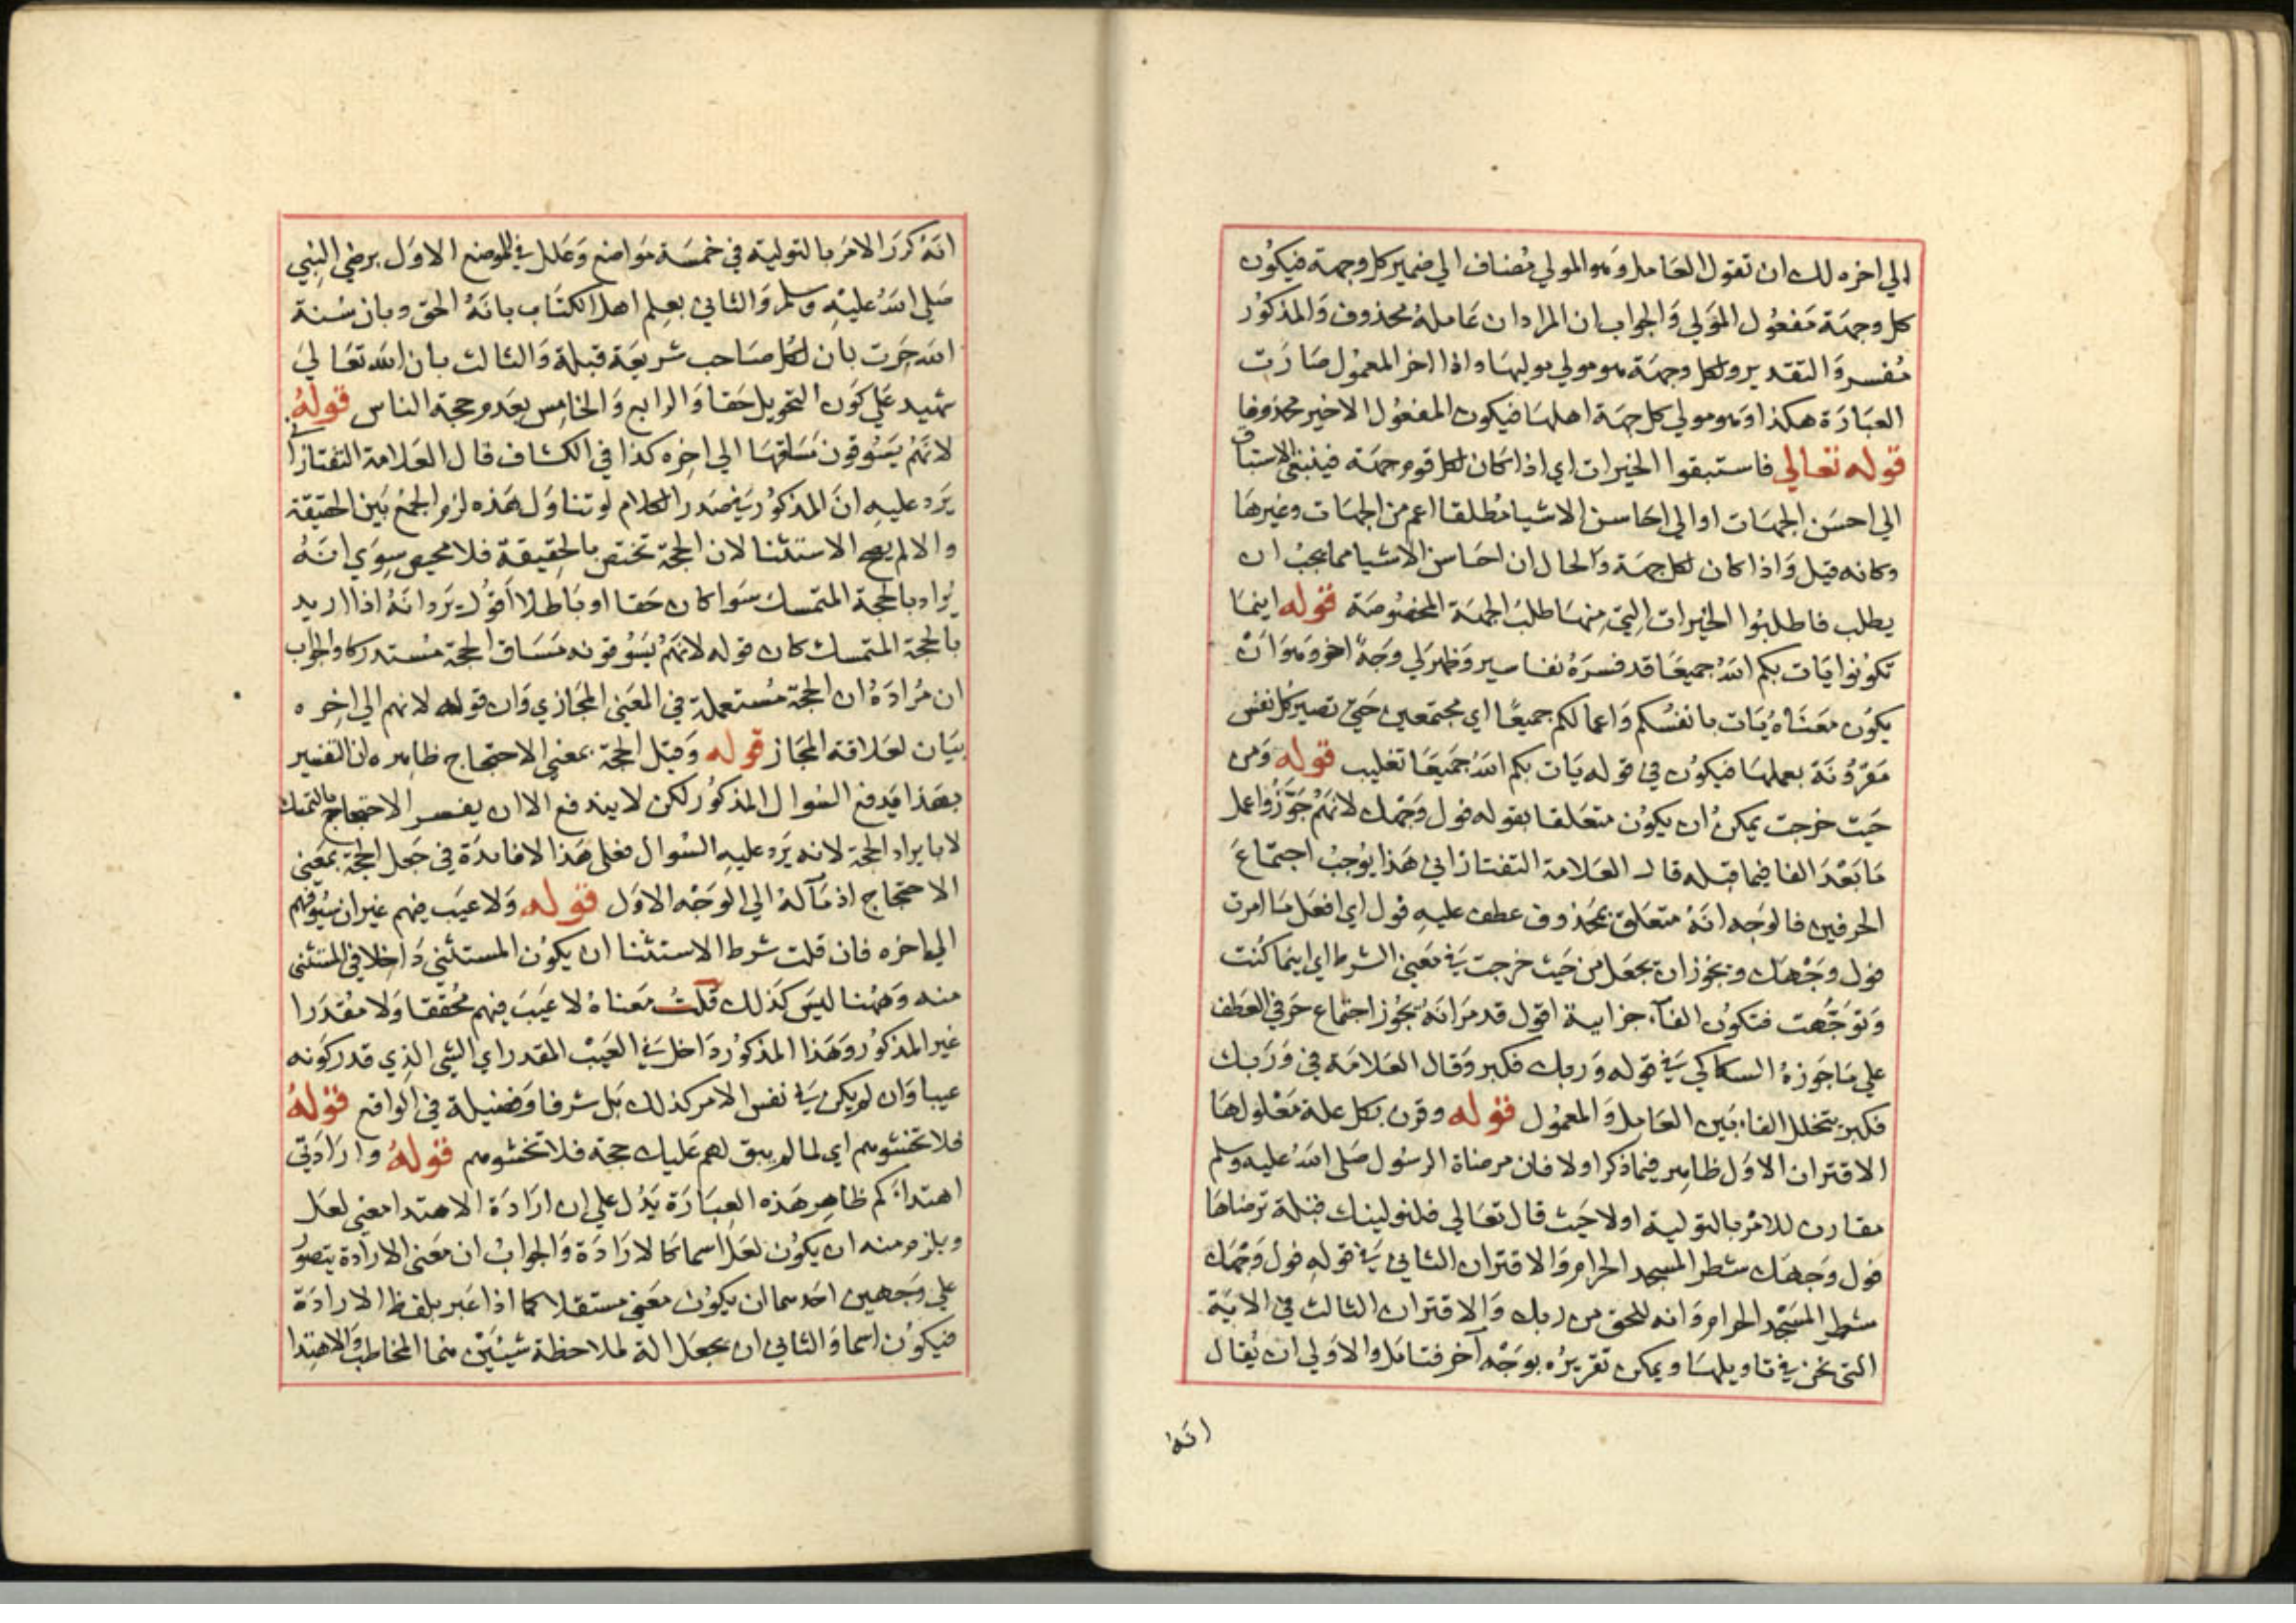 الي اخره لك ان تقول العامل وهو المولي مضاف الي ضمير كل وجهة فيكون
كل وجهة مفعول المولي والجواب ان المراد ان عامله محذوف والمذكور
مفسر والتقدير ولكل وجهة هو مولي موليها واذا اخر المعمول صارت
العبارة هكذا وهو مولي كل جهة اهلها فيكون المفعول الاخير محذوفا
قوله تعالي فاستبقوا الخيرات اي اذا كان لكل قوم وجهة فينبغي الاستباق
الي احسن الجهات او الي احاسن الاشيا مطلقا اعم من الجهات وغيرها
وكانه قيل واذا كان لكل جهة والحال ان احاسن الاشيا مما يجب ان
يطلب فاطلبوا الخيرات التي منها طلب الجهة المخصوصة قوله اينما
تكونوا يات بكم الله جميعا قد فسره تفاسير وظهر لي وجه اخر وهو ان
يكون معناه يات بانفسكم واعمالكم جميعا اي مجتمعين حتي تصير كل نفس
مقرونة بعملها فيكون في قوله يات بكم الله جميعا تغليب قوله ومن
حيث خرجت يمكن ان يكون متعلقا بقوله فول وجهك لانهم جوزوا عمل
ما بعد الفا فيما قبله قال العلامة التفتازاني هذا يوجب اجتماع
الحرفين فالوجه انه متعلق بمحذوف عطف عليه فول اي افعل ما امرت
فول وجهك ويجوز ان يجعل من حيث خرجت في معني الشرط اي اينما كنت
وتوجهت فتكون الفآء جزاية اقول قد مر انه يجوز اجتماع حرفي العطف
علي ما جوزه السكاكي في قوله وربك فكبر وقال العلامة في وربك
فكبر بتخلل الفاء بين العامل والمعمول قوله وقرن بكل علة معلولها
الاقتران الاول ظاهر فيما ذكر اولا فان مرضاة الرسول صلي الله عليه وسلم
مقارن للامر بالتولية اولا حيث قال تعالي فلنولينك قبلة ترضاها
فول وجهك شطر المسجد الحرام والاقتران الثاني في قوله فول وجهك
شطر المسجد الحرام وانه للحق من ربك والاقتران الثالث في الاية
التي نحن في تاويلها ويمكن تقريره بوجه آخر فتامل والاولي ان يقال
انه
انه كرر الامر بالتولية في خمسة مواضع وعلل في الموضع الاول برضي النبي
صلي الله عليه وسلم والثاني بعلم اهل الكتاب بانه الحق وبان سنة
الله جرت بان لكل صاحب شريعة قبلة والثالث بان الله تعالي
شهيد علي كون التحويل حقا والرابع والخامس بعدم حجة الناس قوله
لانهم يسوقون مساقها الي اخره كذا في الكشاف قال العلامة التفتازاني
يرد عليه ان المذكور في صدر الكلام لو تناول هذه لزم الجمع بين الحقيقة
والا لم يصح الاستثنا لان الحجة تختص بالحقيقة فلا محيص سوي انه
يراد بالحجة المتمسك سوا كان حقا او باطلا اقول يرد انه اذا اريد
بالحجة المتمسك كان قوله لانهم يسوقونه مساق الحجة مستدركا والجواب
ان مراده ان الحجة مستعملة في المعني المجازي وان قوله لانهم الي اخره
بيان لعلاقة المجاز قوله وقيل الحجة بمعني الاحتجاج ظاهره ان التفسير
بهذا يدفع السوال المذكور لكن لا يندفع الا ان يفسر الاحتجاج بالتمسك
لا بايراد الحجة لانه يرد عليه السوال فعلي هذا لا فايدة في جعل الحجة بمعني
الاحتجاج اذ مآله الي الوجه الاول قوله ولا عيب فيهم غير ان سيوفهم
الي اخره فان قلت شرط الاستثنا ان يكون المستثني داخلا في المستثني
منه وههنا ليس كذلك قلت معناه لا عيب فيهم محققا ولا مقدرا
غير المذكور وهذا المذكور داخل في العيب المقدر اي الشي الذي قدر كونه
عيبا وان لم يكن في نفس الامر كذلك بل شرفا وفضيلة في الواقع قوله
فلا تخشوهم اي لما لم يبق لهم عليك حجة فلا تخشوهم قوله وارادتي
اهتداءكم ظاهر هذه العبارة يدل علي ان ارادة الاهتدا معني لعل
ويلزم منه ان يكون لعل اسما كالارادة والجواب ان معني الارادة يتصور
علي وجهين احدهما ان يكون معني مستقلا كما اذا عبر بلفظ الارادة
فيكون اسما والثاني ان يجعل الة لملاحظة شيئين هما المخاطب والاهتدا